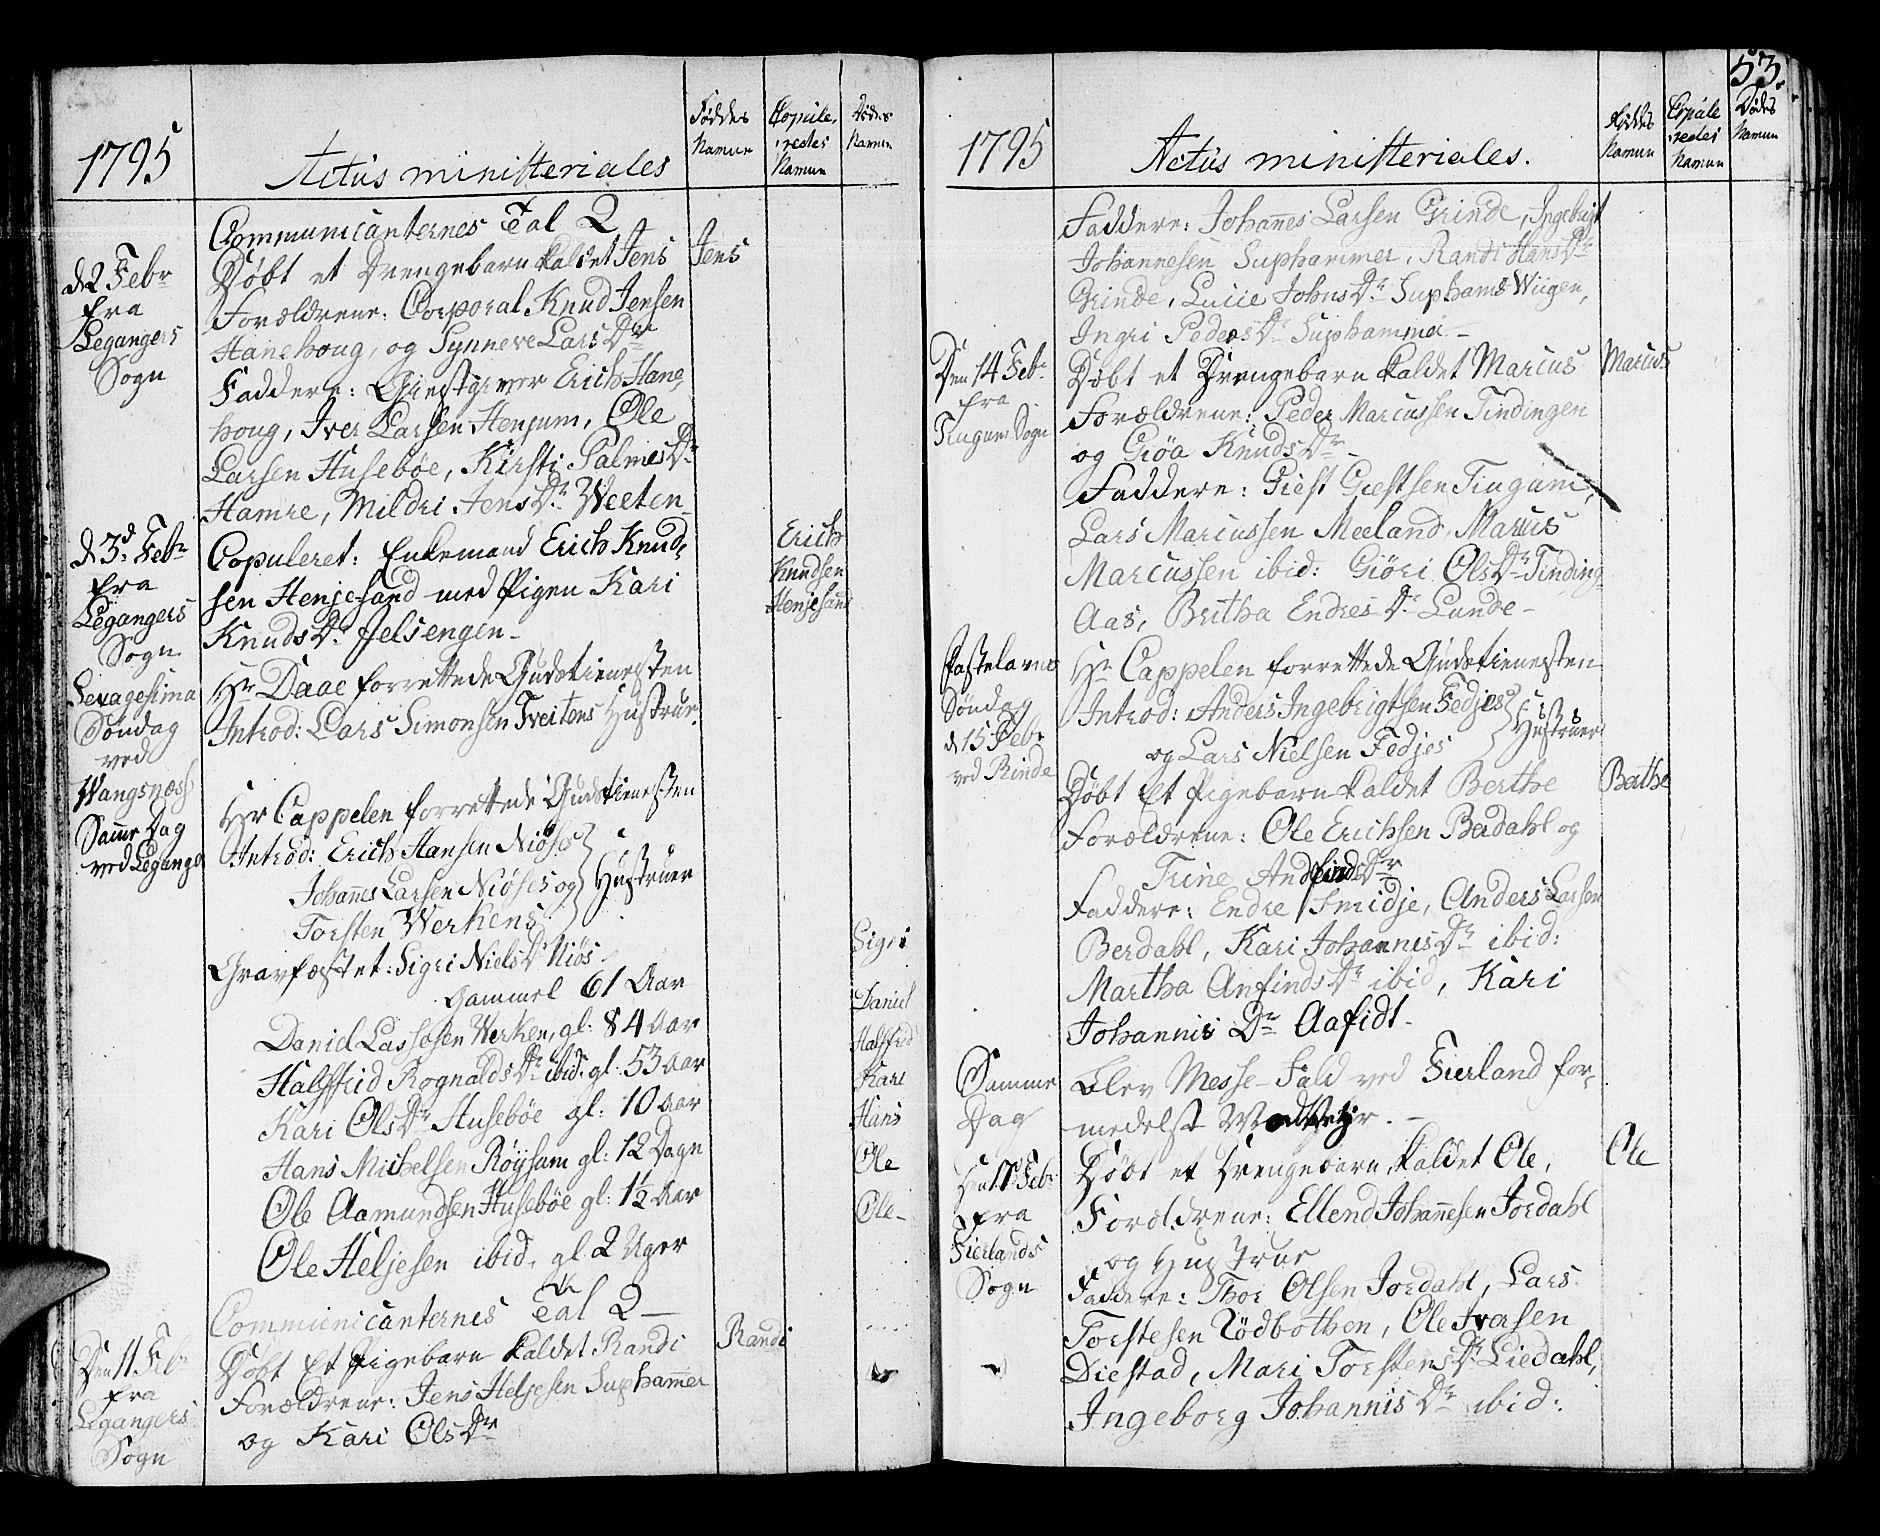 1795
Actus ministeriales
Føddes Namne
Copuleredes Namne
Dødes Namne
Communicanternes Tal 2
d 2 Febr fra Leganger Sogn
Døbt et Drengebarn kaldet Jens
Jens
Forældrene: Corporal Knud Jensen
Hanehoug, og Synneve Lars Dr
Faddere: Giestgiver Erich Hane,
houg, Iver Larsen Henjum, Ole
Larsen Husebøe, Kirsti Palmes Dr
Hamre, Mildri Jens Dr Weeten
d 3d Febr fra Legangers Sogn
Copuleret: Enkemand Erich Knud,
Erich Knudsen Henjesand
sen Henjesand med Pigen Kari
Knuds Dr Jelsengen
Sexagesima Søndag ved Wangsnæss
Hr Daae forrettede Gudstienesten
Introd: Lars Simonsen Tveitens Hustrue.
Samme Dag ved Leganger
Hr Cappelen forrettede Gudstienesten
Introd: Erich Hansen Niøs
Johannes Larsen Niøses og
Torsten Werkens
Hustruer
Gravfæstet: Sigri Niels Dr Niøs
Sigri
Gammel 61 Aar
Daniel Lassesen Werken, gl: 84 Aar
Daniel
Halffrid Rognalds Dr ibid. gl: 53 Aar
Halffrid
Kari Ols Dr Husebøe gl: 10 Aar
Kari
Hans Michelsen Røysam gl: 12 Dage
Hans
Ole Aamundsen Husebøe gl: 1½ Aar
Ole
Ole Heljesen ibid. gl. 2 Uger
Ole
Communicanternes Tal 2
Den 11 Febr fra Legangers Sogn
Døbt Et Pigebarn kaldet Randi
Randi
Forældrene: Jens Heljesen Suphammer
og Kari Ols Dr
53.
1795
Actus ministeriales.
Føddes Namne
Copuleredes Namne
Dødes Namne
Faddere: Johannes Larsen Grinde, Ingebrigt
Johannesen Suphammer, Randi Hans Dr
Grinde, Lucie Johns Dr Suphams Wiigen,
Ingri Peders Dr Suphammer
Den 14 Febr fra Tiugum Sogn
Døbt et Drengebarn kaldet Marcus
Marcus
Forældrene: Peder Marcussen Tindingen
og Giøa Knuds Dr
Faddere: Giest Giestsen Tiugum,
Lars Marcussen Meeland, Marcus
Marcussen ibid: Giøri Ols Dr Tinding
Aas, Britha Endres Dr Lunde
Fastelavns Søndag d 15 Febr ved Rinde
Hr Cappelen forrettede Gudstienesten
Introd: Anders Ingebrigtsen Fedjes
og Lars Nielsen Fedjes
Hustruer
Døbt Et Pigebarn kaldet Berthe
Berthe
Forældrene: Ole Erichsen Berdahl og
Trine Andfinds Dr
Faddere: Endre Smidje, Anders Larsen
Berdahl, Kari Johannis Dr ibid:
Martha Anfinds Dr ibid, Kari
Johannis Dr Aafidt
Samme Dag
Blev Messe-Fald ved Fierland for,
medelst
Den 17 Febr fra Fierlands Sogn
Døbt et Drengebarn, kaldet Ole,
Ole
Forældrene: Ellend Johannesen Jordahl
og Hustrue
Faddere: Thor Olsen Jordahl, Lars
Torstesen Rødbotnen, Ole Iversen
Diestad, Mari Torstens Dr Liedahl,
Ingeborg Johannis Dr ibid: